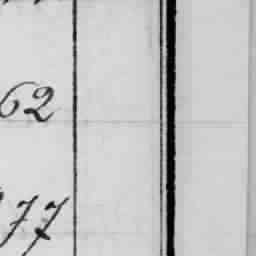 62
77